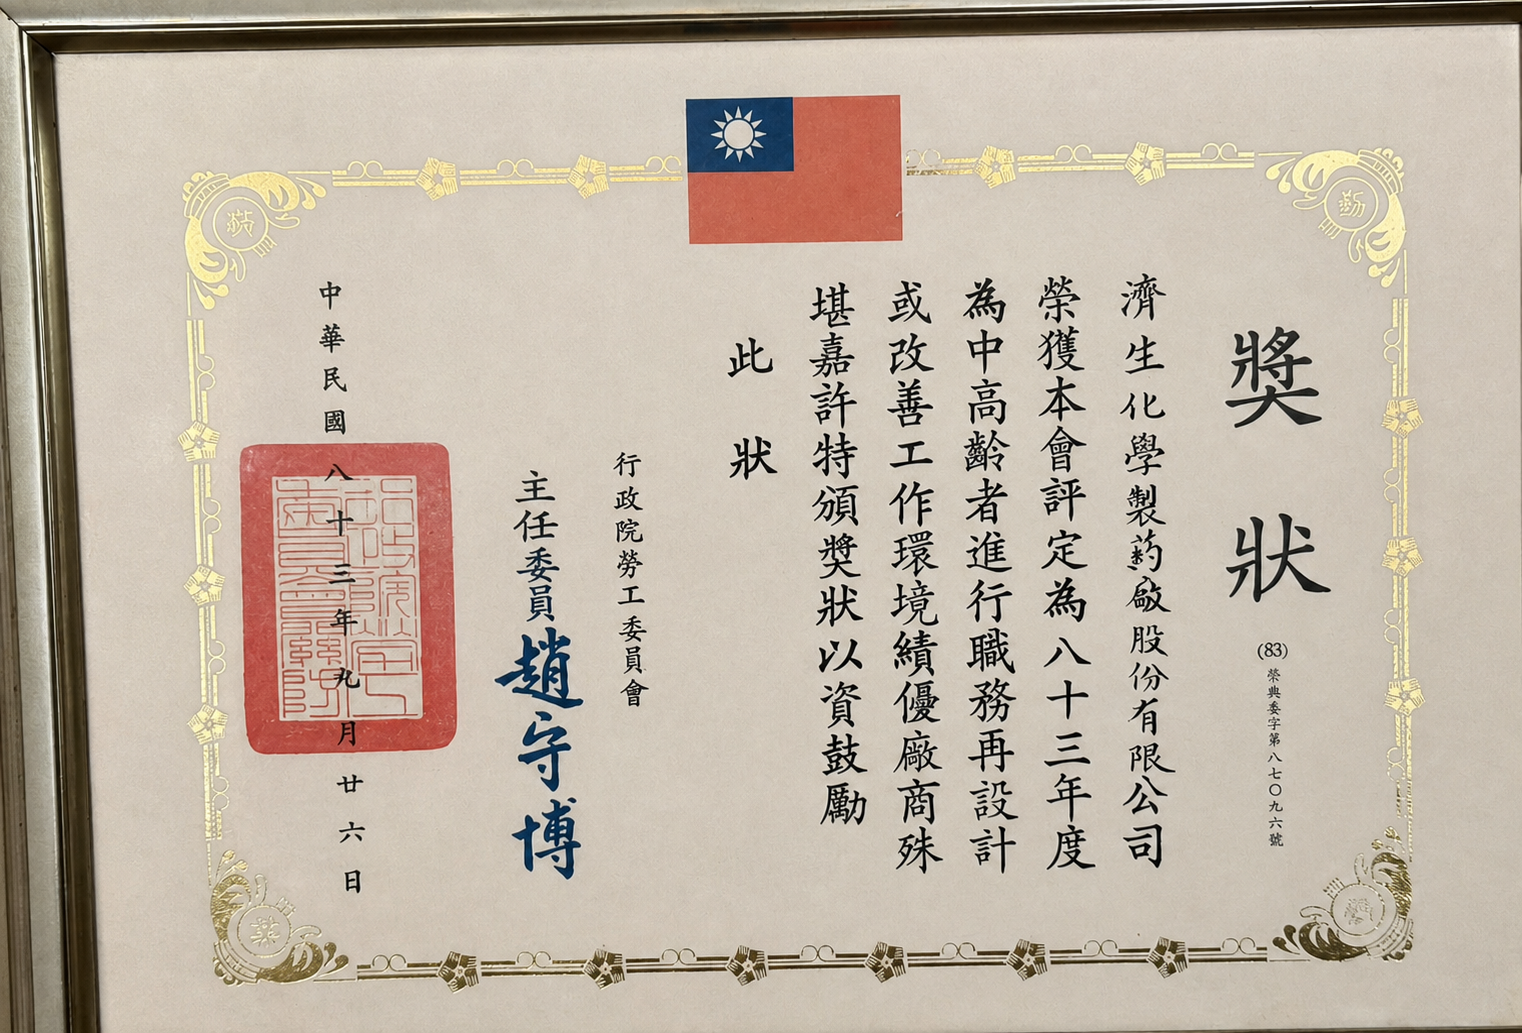 獎狀
(83)榮典委字第八七〇九六號
濟生化學製葯廠股份有限公司
榮獲本會評定為八十三年度
為中高齡者進行職務再設計
或改善工作環境績優廠商殊
堪嘉許特頒獎狀以資鼓勵
此狀
行政院勞工委員會
主任委員趙守博
中華民國八十三年九月廿六日